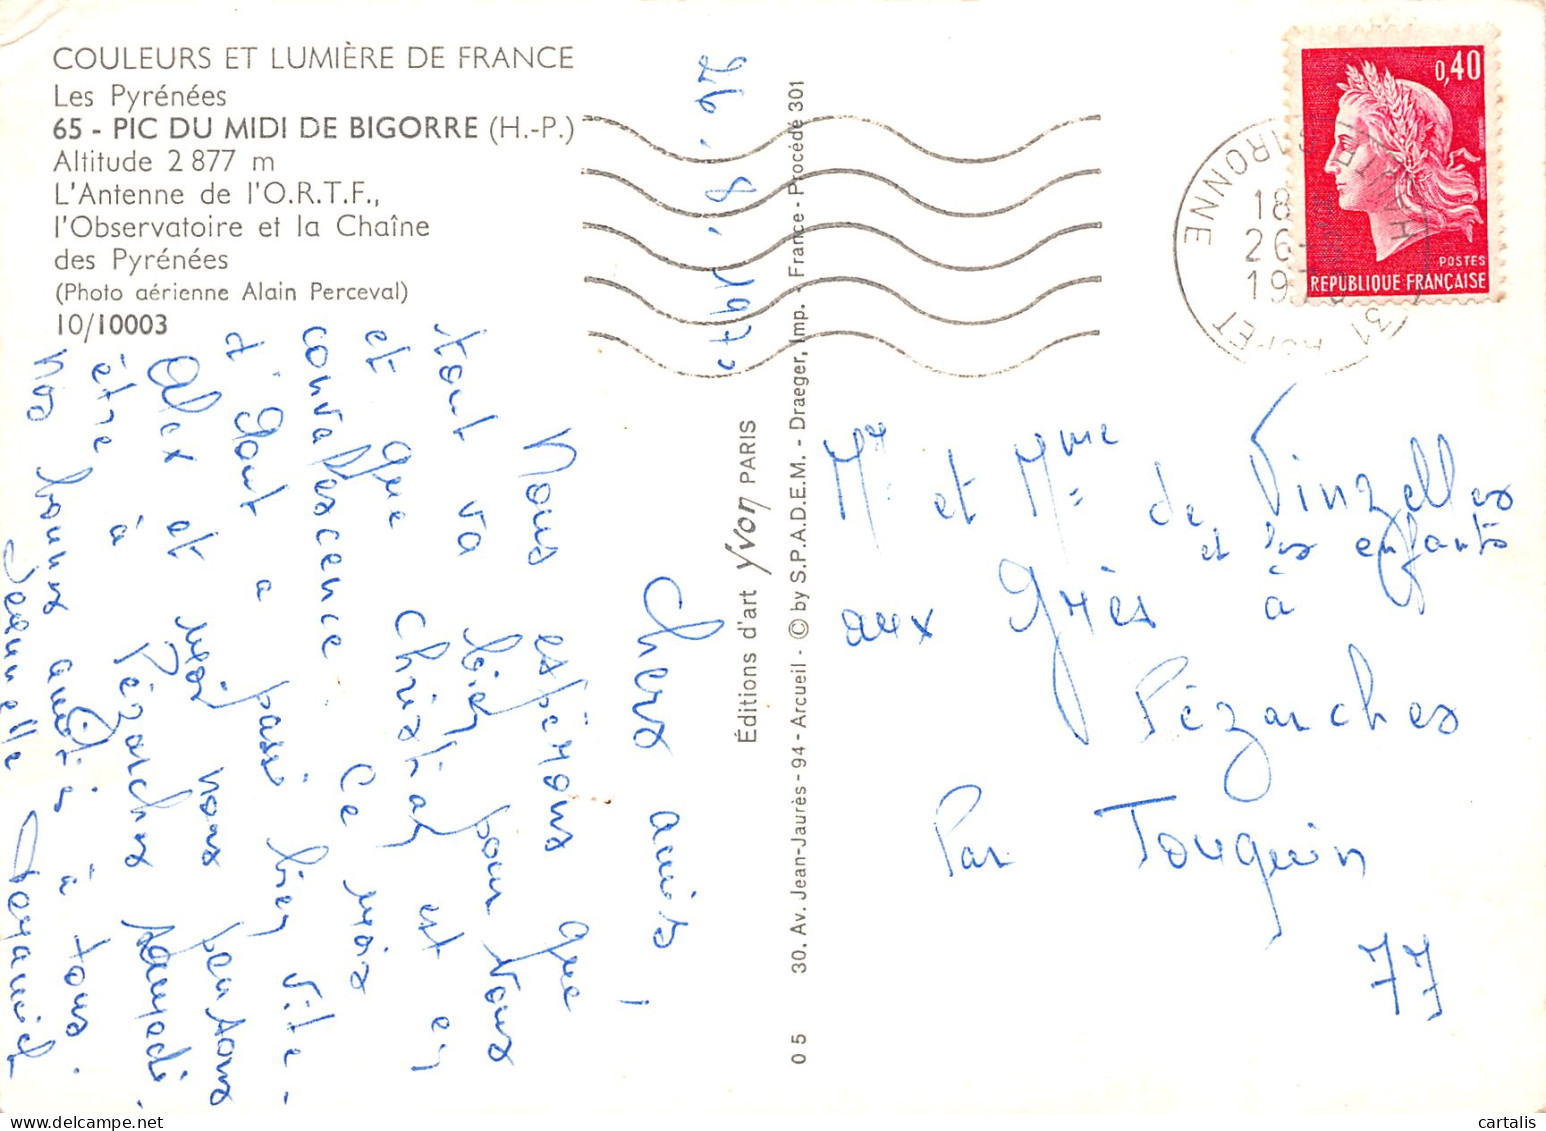 COULEURS ET LUMIÈRE DE FRANCE
Les Pyrénées
65 - PIC DU MIDI DE BIGORRE (H.-P.)
Altitude 2 877 m
L'Antenne de l'O.R.T.F.,
l'Observatoire et la Chaîne
des Pyrénées
(Photo aérienne Alain Perceval)
10/10003
26.8.1970
Chers amis !
Nous espérons que
tout va bien pour vous
et que Christian est en
convalescence. Ce mois
d'Août a passé bien vite -
Alex et moi nous pensons
être à Pézarches samedi.
Nos bonnes amitiés à tous.
Jeannelle
Éditions d'art Yvon PARIS
30. Av. Jean-Jaurès - 94 - Arcueil - © by S.P.A.D.E.M. - Draeger, Imp. - France - Procédé 301
0 5
0,40
POSTES
RÉPUBLIQUE FRANÇAISE
31 ASPET
HNE GARONNE
18
26-8
19
Mr et Mme de Vinzelles
et les enfants
aux Grès à
Pézarches
Par Touquin
77
cartalis